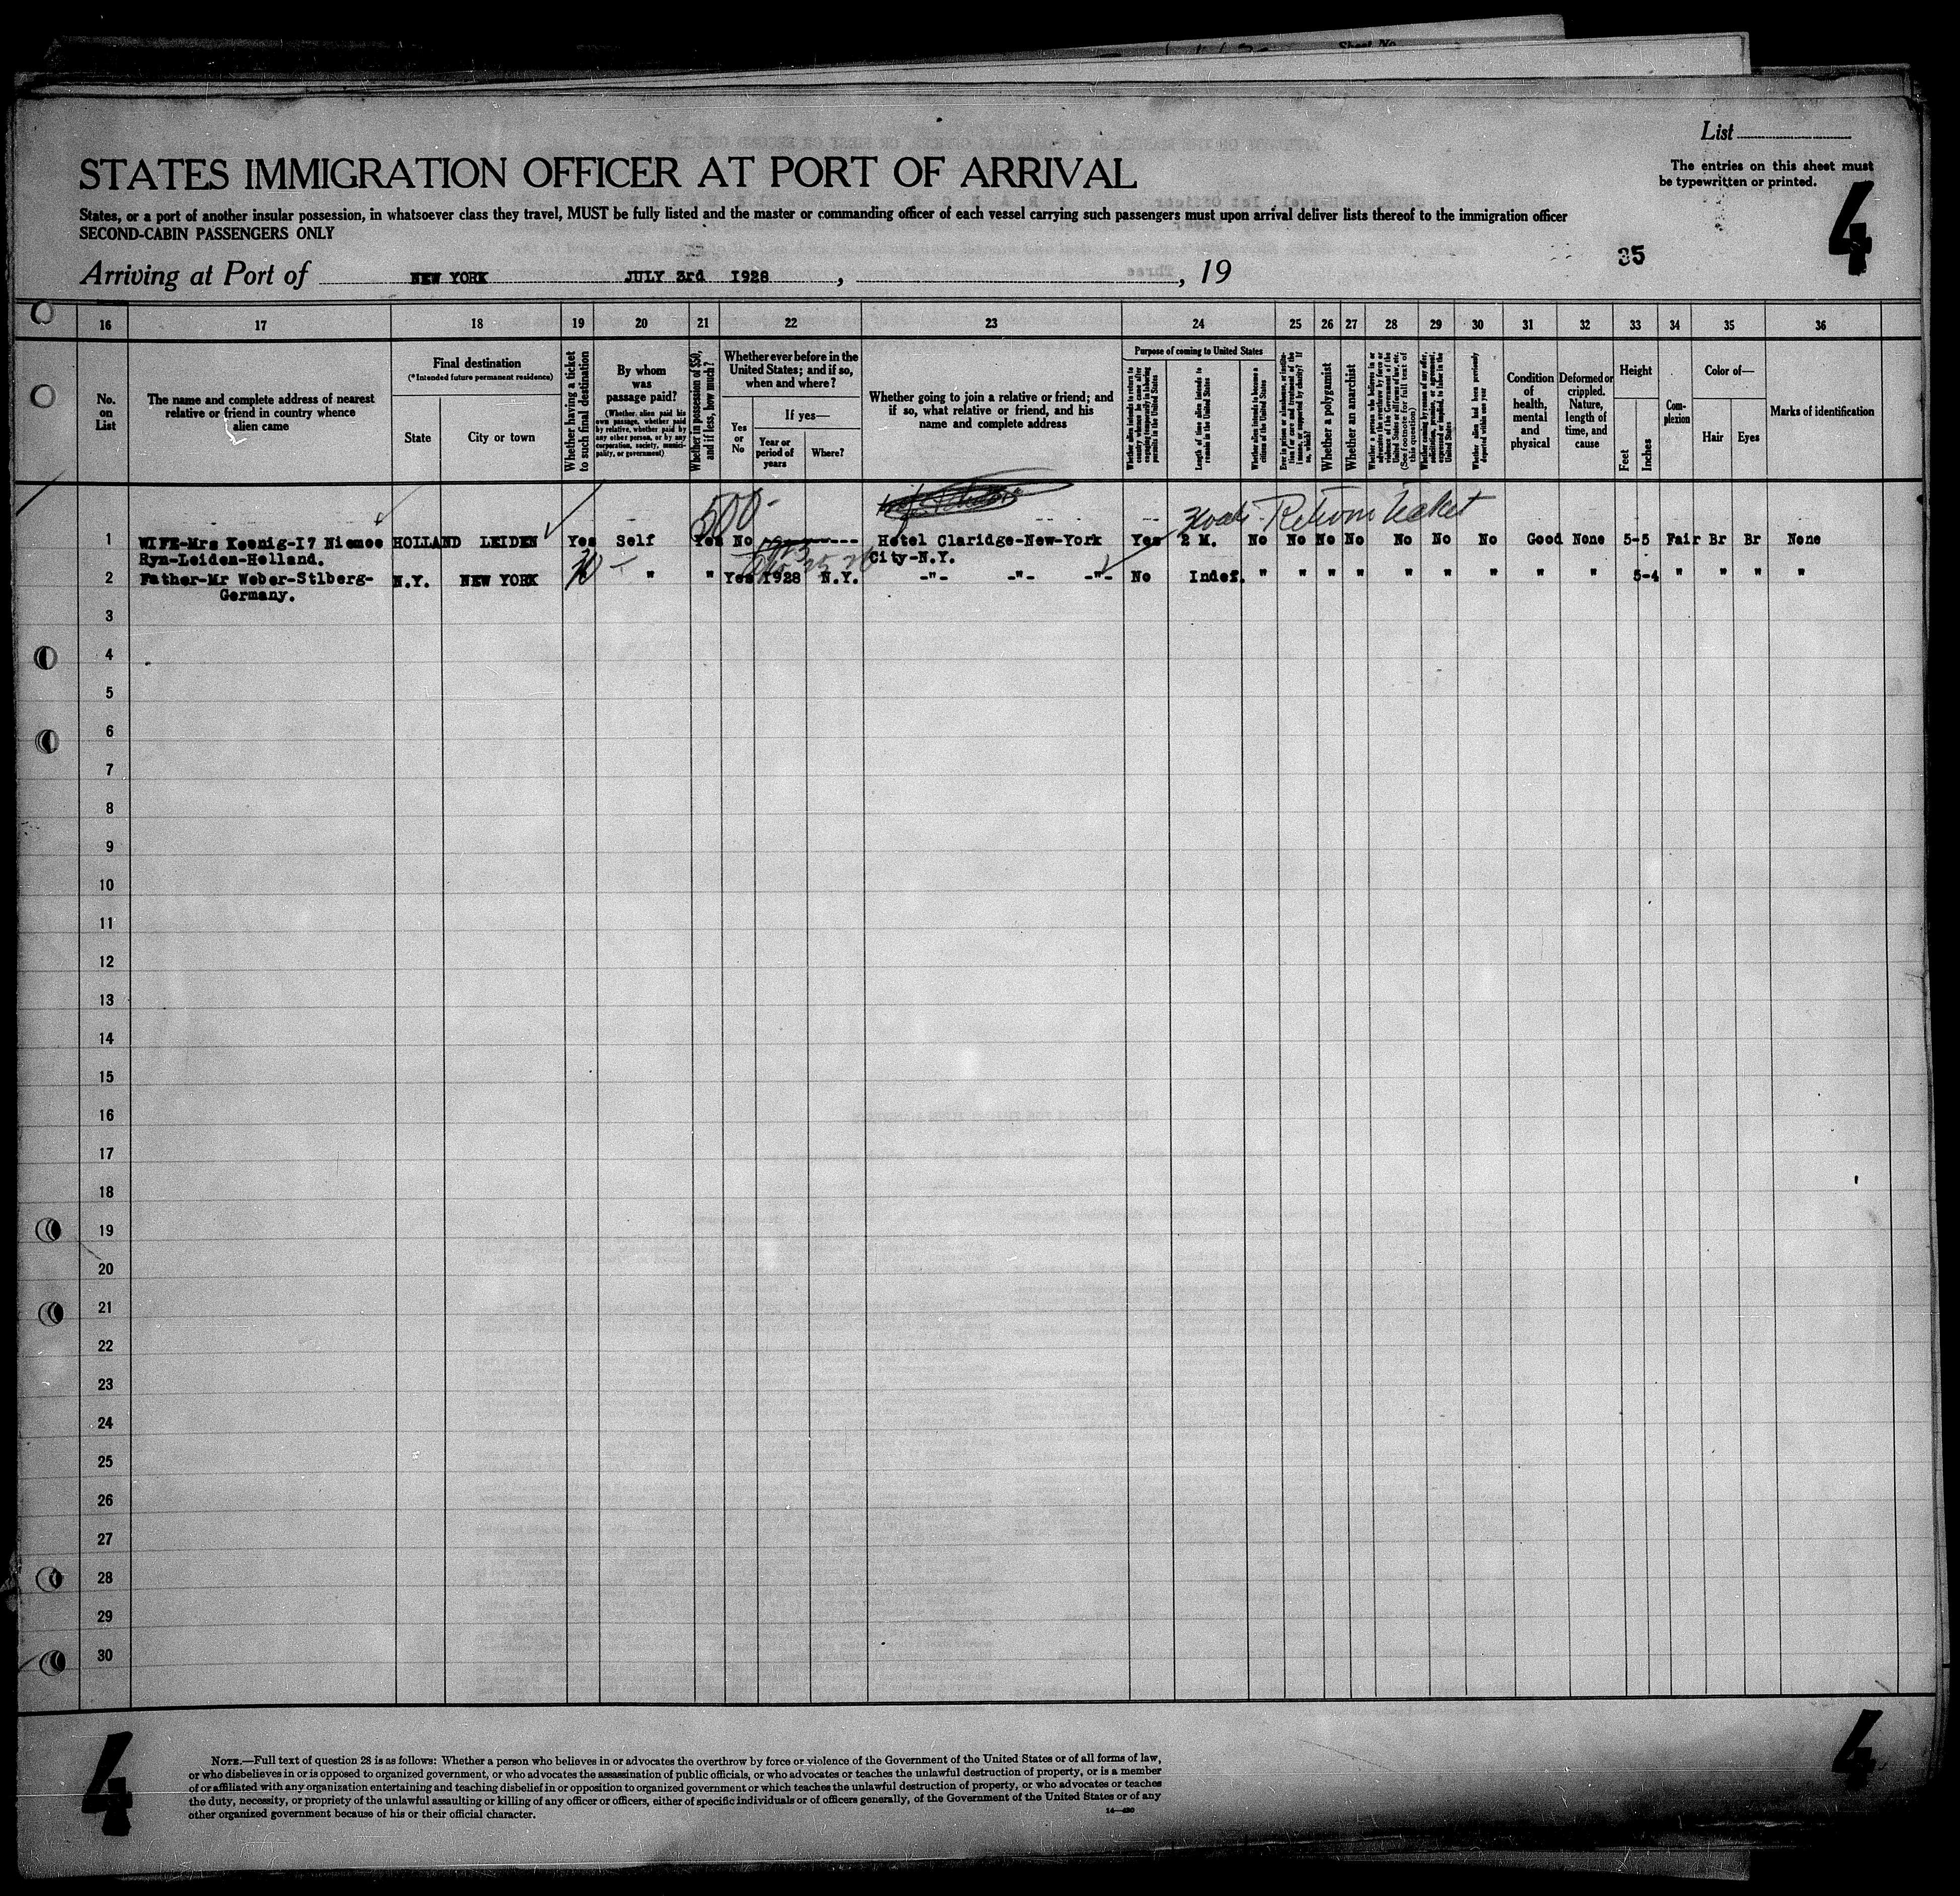 List
STATES IMMIGRATION OFFICER AT PORT OF ARRIVAL
The entries on this sheet must
be typewritten or printed.
4
States, or a port of another insular possession, in whatsoever class they travel, MUST be fully listed and the master or commanding officer of each vessel carrying such passengers must upon arrival deliver lists thereof to the immigration officer
SECOND-CABIN PASSENGERS ONLY
35
Arriving at Port of NEW YORK JULY 3rd 1928, , 19
16 17 18 19 20 21 22 23 24 25 26 27 28 29 30 31 32 33 34 35 36
No. on List
The name and complete address of nearest relative or friend in country whence alien came
Final destination
(*Intended future permanent residence)
State
City or town
Whether having a ticket to such final destination
By whom was passage paid?
(Whether alien paid his own passage, whether paid by relative, whether paid by any other person, or by any corporation, society, municipality, or government)
Whether in possession of $50, and if less, how much?
Whether ever before in the United States; and if so, when and where?
Yes or No
If yes—
Year or period of years
Where?
Whether going to join a relative or friend; and if so, what relative or friend, and his name and complete address
Purpose of coming to United States
Whether alien intends to return to country whence he came after engaging temporarily in laboring pursuits in the United States
Length of time alien intends to remain in the United States
Whether alien intends to become a citizen of the United States
Whether a polygamist
Whether an anarchist
Whether alien had been previously deported within one year
Condition of health, mental and physical
Deformed or crippled. Nature, length of time, and cause
Height
Feet
Inches
Complexion
Color of—
Hair
Eyes
Marks of identification
500-
Return ticket
1 WIFE-Mrs Koenig-I7 Niemee HOLLAND LEIDEN Yes Self Yes No Hotel Claridge-New-York Yes 2 M. No No No No No No No Good None 5-5 Fair Br Br None
Ryn-Leiden-Holland. City-N.Y.
2 Father-Mr Weber-Stlberg- N.Y. NEW YORK " " Yes 1928 N.Y. -"- -"- -"- No Indef. " " " " " " " " " 5-4 " " " "
Germany.
3
4
5
6
7
8
9
10
11
12
13
14
15
16
17
18
19
20
21
22
23
24
25
26
27
28
29
30
4
4
NOTE.—Full text of question 28 is as follows: Whether a person who believes in or advocates the overthrow by force or violence of the Government of the United States or of all forms of law,
or who disbelieves in or is opposed to organized government, or who advocates the assassination of public officials, or who advocates or teaches the unlawful destruction of property, or is a member
of or affiliated with any organization entertaining and teaching disbelief in or opposition to organized government or which teaches the unlawful destruction of property, or who advocates or teaches
the duty, necessity, or propriety of the unlawful assaulting or killing of any officer or officers, either of specific individuals or of officers generally, of the Government of the United States or of any
other organized government because of his or their official character.